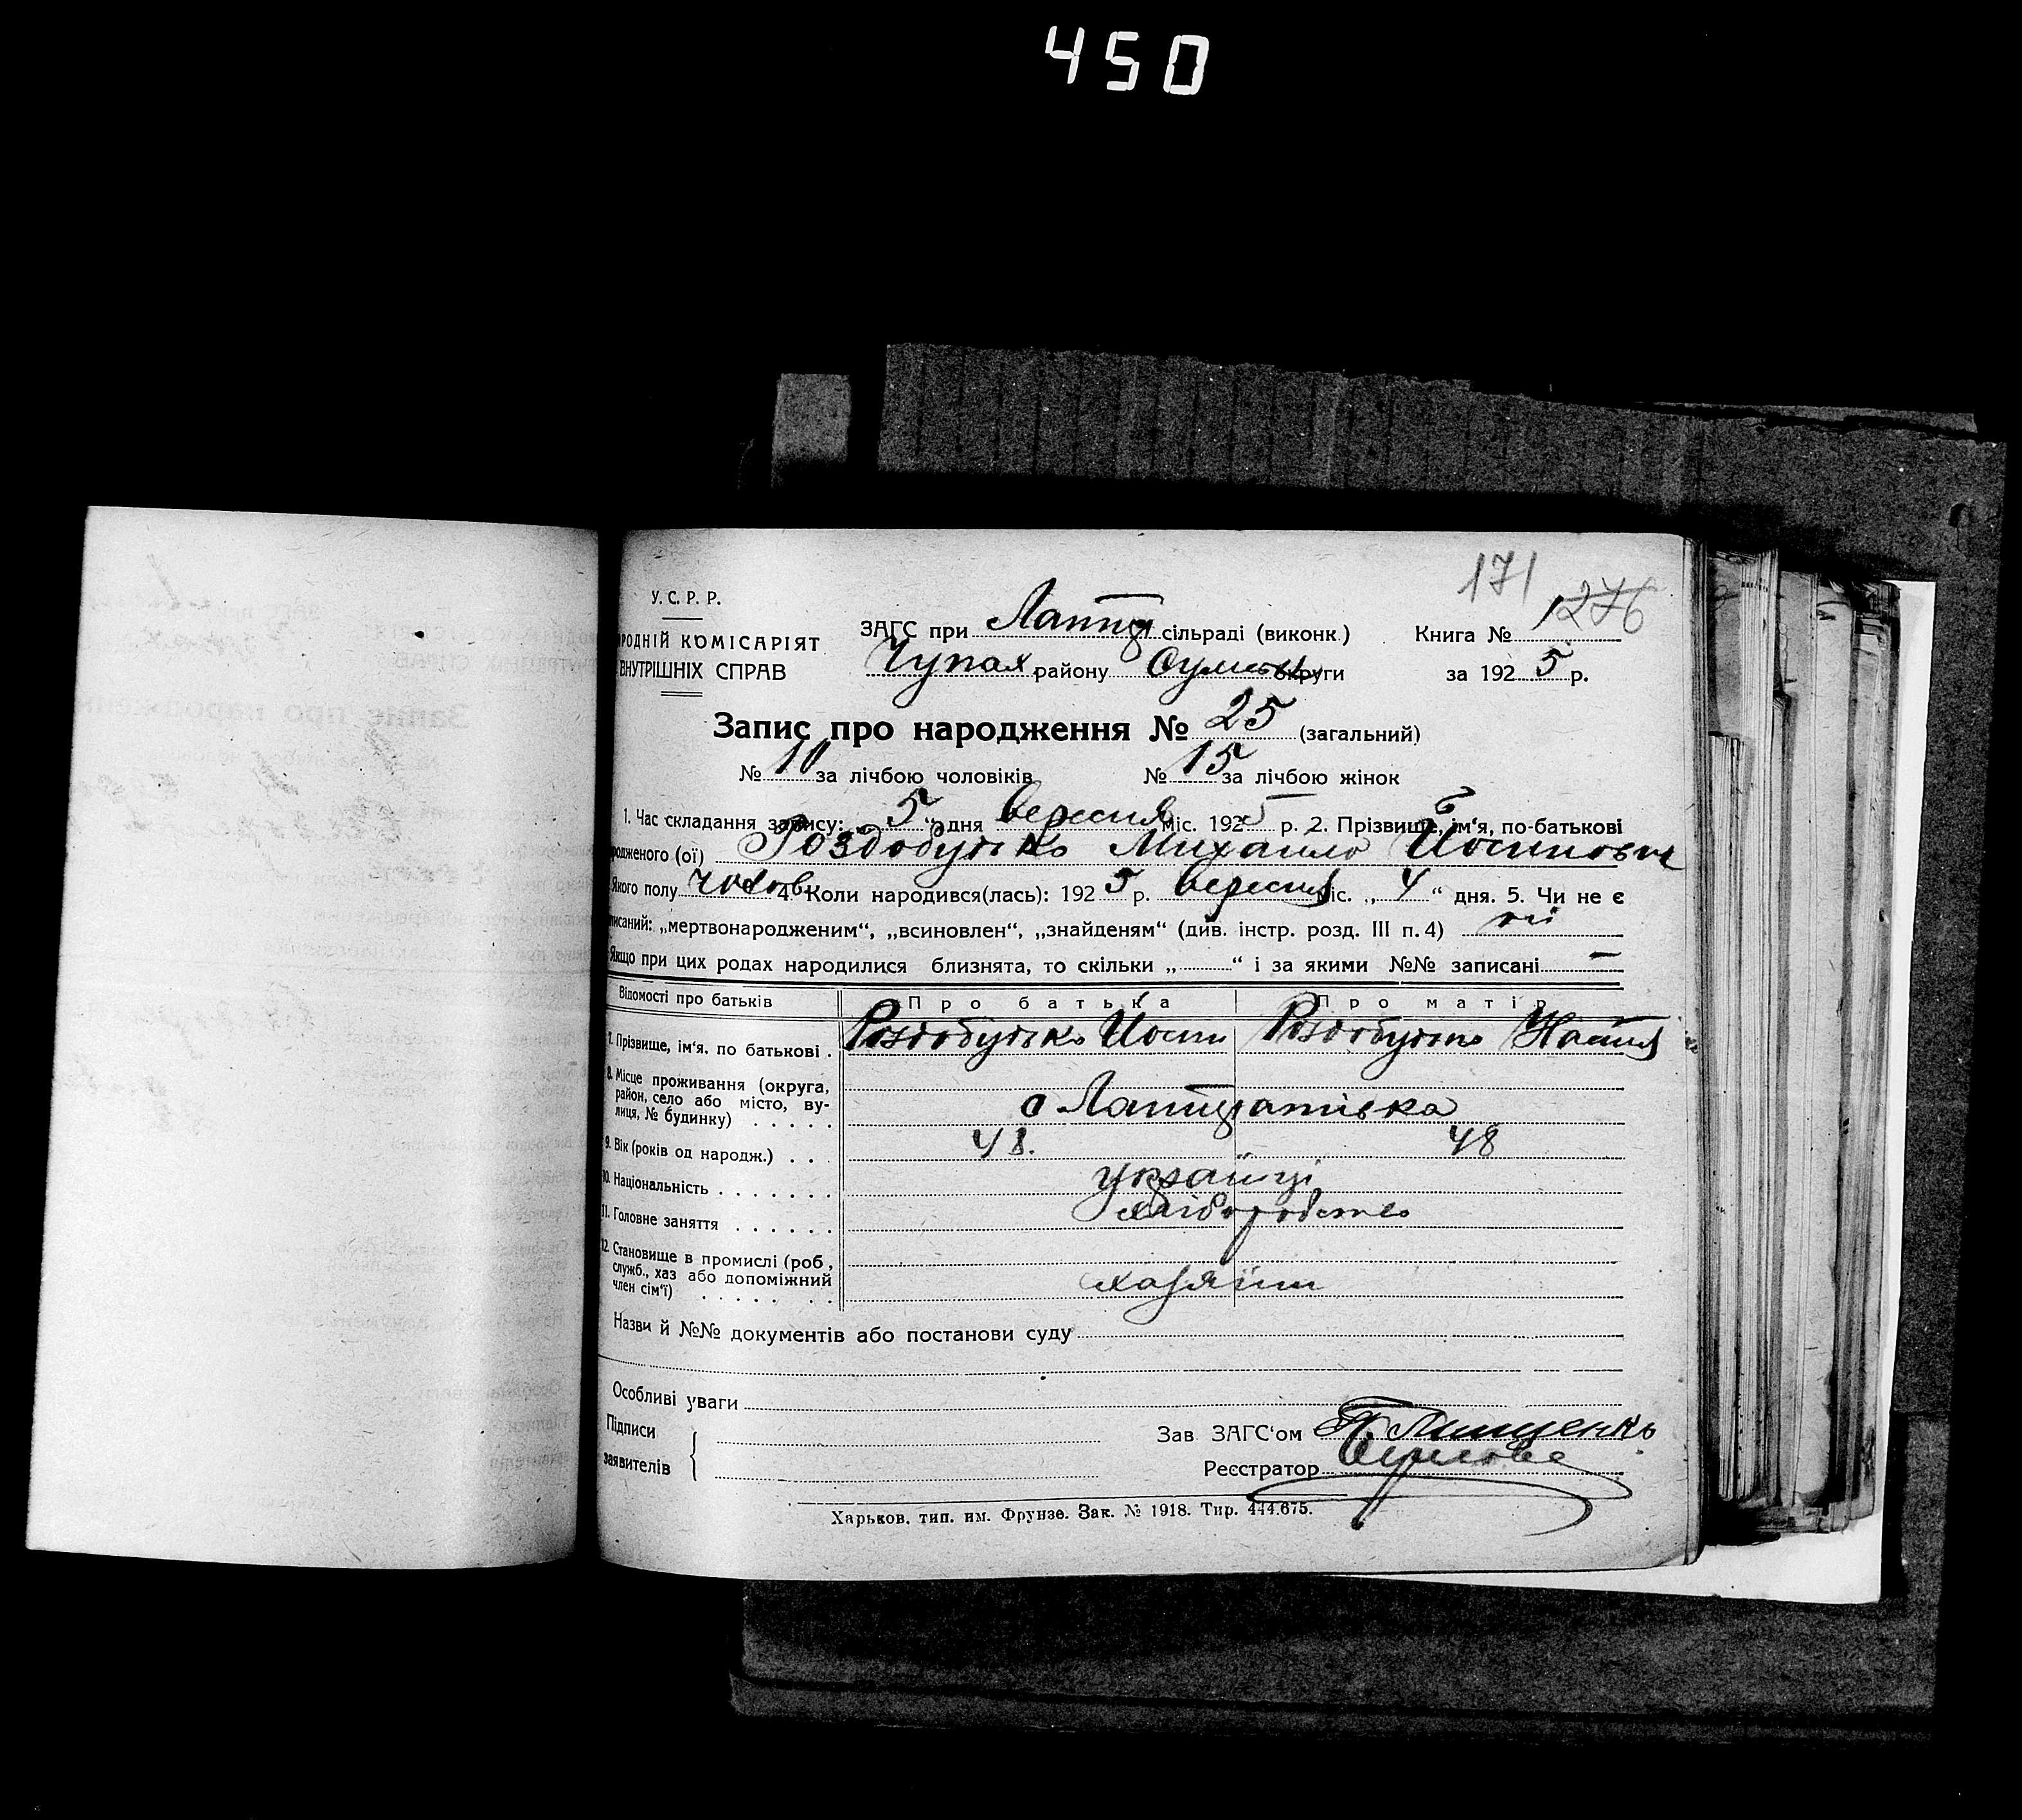 450
171
1276
У. С. Р. Р.
РОДНІЙ КОМІСАРІЯТ
ВНУТРІШНІХ СПРАВ
ЗАГС при сільраді (виконк.) Книга №
Чупах району Сумськ округи за 1925 р.
Запис про народження № 25 (загальний)
№ 10 за лічбою чоловіків № 15 за лічбою жінок
1. Час складання запису: „ 5 “ дня вересня міс. 1925 р. 2. Прізвище, ім‘я, по-батькові
родженого (ої) Роздобудько Михайло Йосипович
Якого полу чолов. 4. Коли народився(лась): 1925 р. вересня міс. „ 4 “ дня. 5. Чи не є
писаний: „мертвонародженим“, „всиновлен“, „знайденям“ (див. інстр. розд. III п. 4) ні
Якщо при цих родах народилися близнята, то скільки „ “ і за якими №№ записані —
Відомості про батьків Про батька Про матір
7. Прізвище, ім‘я, по батькові . Роздобудько Йосип Роздобудько Настя
8. Місце проживання (округа,
район, село або місто, ву-
лиця, № будинку) . . . . .
с
9. Вік (років од народж.) . . 48. 48
10. Національність . . . . . . . українці
11. Головне заняття . . . . . . хліборобство
12. Становище в промислі (роб,
служб., хаз або допоміжний
член сім‘ї) . . . . . . . хазяїни
Назви й №№ документів або постанови суду
Особливі уваги
Підписи
заявителів
Зав ЗАГС‘ом
Реєстратор
Харьков, тип. им. Фрунзе. Зак. № 1918. Тир. 444.675.